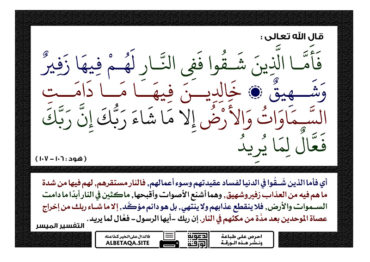 قال الله تعالى :
فَأَمَّا الَّذِينَ شَقُوا فَفِى النَّارِ لَهُمْ فِيهَا زَفِيرٌ
وَشَهِيقٌ ۞ خَالِدِينَ فِيهَا مَا دَامَتِ
السَّمَاوَاتُ وَالأَرْضُ إِلا مَا شَاءَ رَبُّكَ إِنَّ رَبَّكَ
فَعَّالٌ لِمَا يُرِيدُ
( هود : ١٠٦ - ١٠٧ )
أي فأما الذين شقُوا في الدنيا لفساد عقيدتهم وسوء أعمالهم, فالنار مستقرهم, لهم فيها من شدة
ما هم فيه من العذاب زفير وشهيق, وهما أشنع الأصوات وأقبحها, ماكثين في النار أبدًا ما دامت
السموات والأرض, فلا ينقطع عذابهم ولا ينتهي, بل هو دائم مؤكَّد, إلا ما شاء ربك من إخراج
عصاة الموحدين بعد مدَّة من مكثهم في النار. إن ربك -أيها الرسول- فعَّال لما يريد.
التفسير الميسر
احرص على طباعة
ونشر هذه الورقة
ALBETAQA.SITE